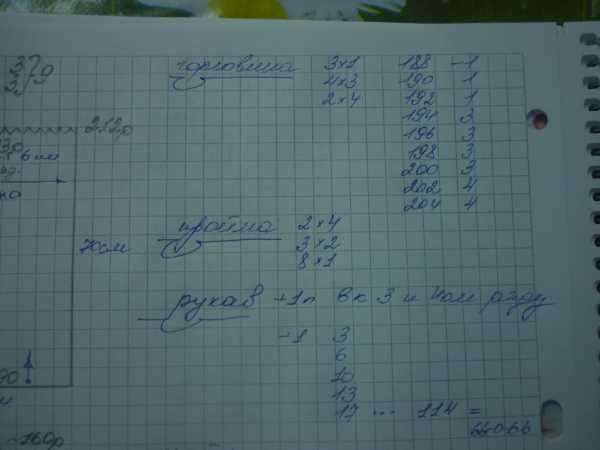 379
горловина 3×1 188 -1
4×3 190 1
2×4 192 1
212р 194 3
196 3
198 3
200 3
202 4
204 4
пройма 2×4
70см 3×2
8×1
рукав +1п в к 3 и 4ом ряду
-1 3
6
10
13
17 ... 114 =
~160р